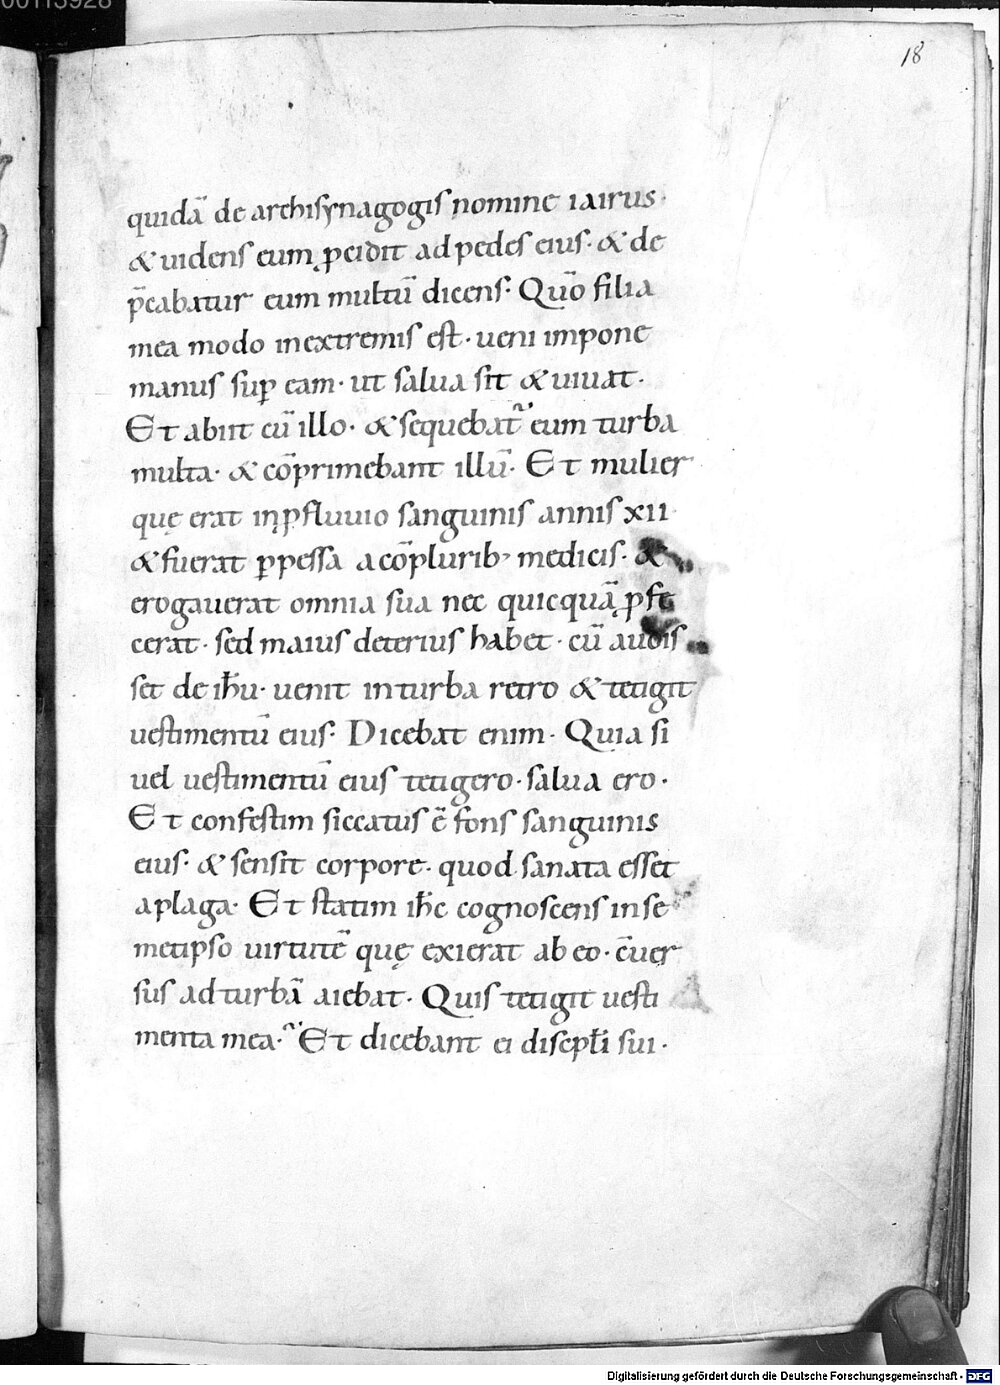 00113928
18
quidā de archisynagogis nomine iairus·
& uidens eum ꝓcidit ad pedes eius· & de
p̄cabatur eum multū dicens· Qūo filia
mea modo in extremis est· ueni impone
manus suꝑ eam· ut salua sit & uiuat·
Et abiit cū illo· & sequebat᷑ eum turba
multa· & cōprimebant illū· Et mulier
quę erat in ꝓfluuio sanguinis annis xii
& fuerat ꝑpessa a cōplurib; medicis· &
erogauerat omnia sua nec quicquā ꝓfe
cerat· sed maius deterius habet· cū audis
set de ih̄u· uenit in turba retro & tetigit
uestimentū eius· Dicebat enim· Quia si
uel uestimentū eius tetigero· salua ero·
Et confestim siccatus ē fons sanguinis
eius· & sensit corpore· quod sanata esset
a plaga· Et statim ih̄c cognoscens in se
metipso uirtutē quę exierat ab eo· c̄uer
sus ad turbā aiebat· Quis tetigit uesti
menta mea· Et dicebant ei discipl̄i sui·
Digitalisierung gefördert durch die Deutsche Forschungsgemeinschaft - DFG